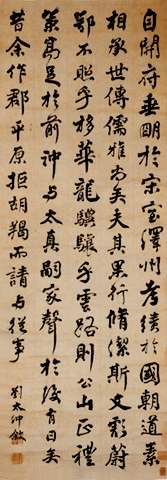 自開府垂明於宋室澤州考績於國朝道素
相承世傳儒雅尚矣夫其果行脩潔斯文彪蔚
鄂不照乎栘華龍驤驤乎雲路則公山正禮
策高足於前沖与太真嗣家聲於後有日矣
昔余作郡平原拒胡羯而請与從事
劉太沖敘